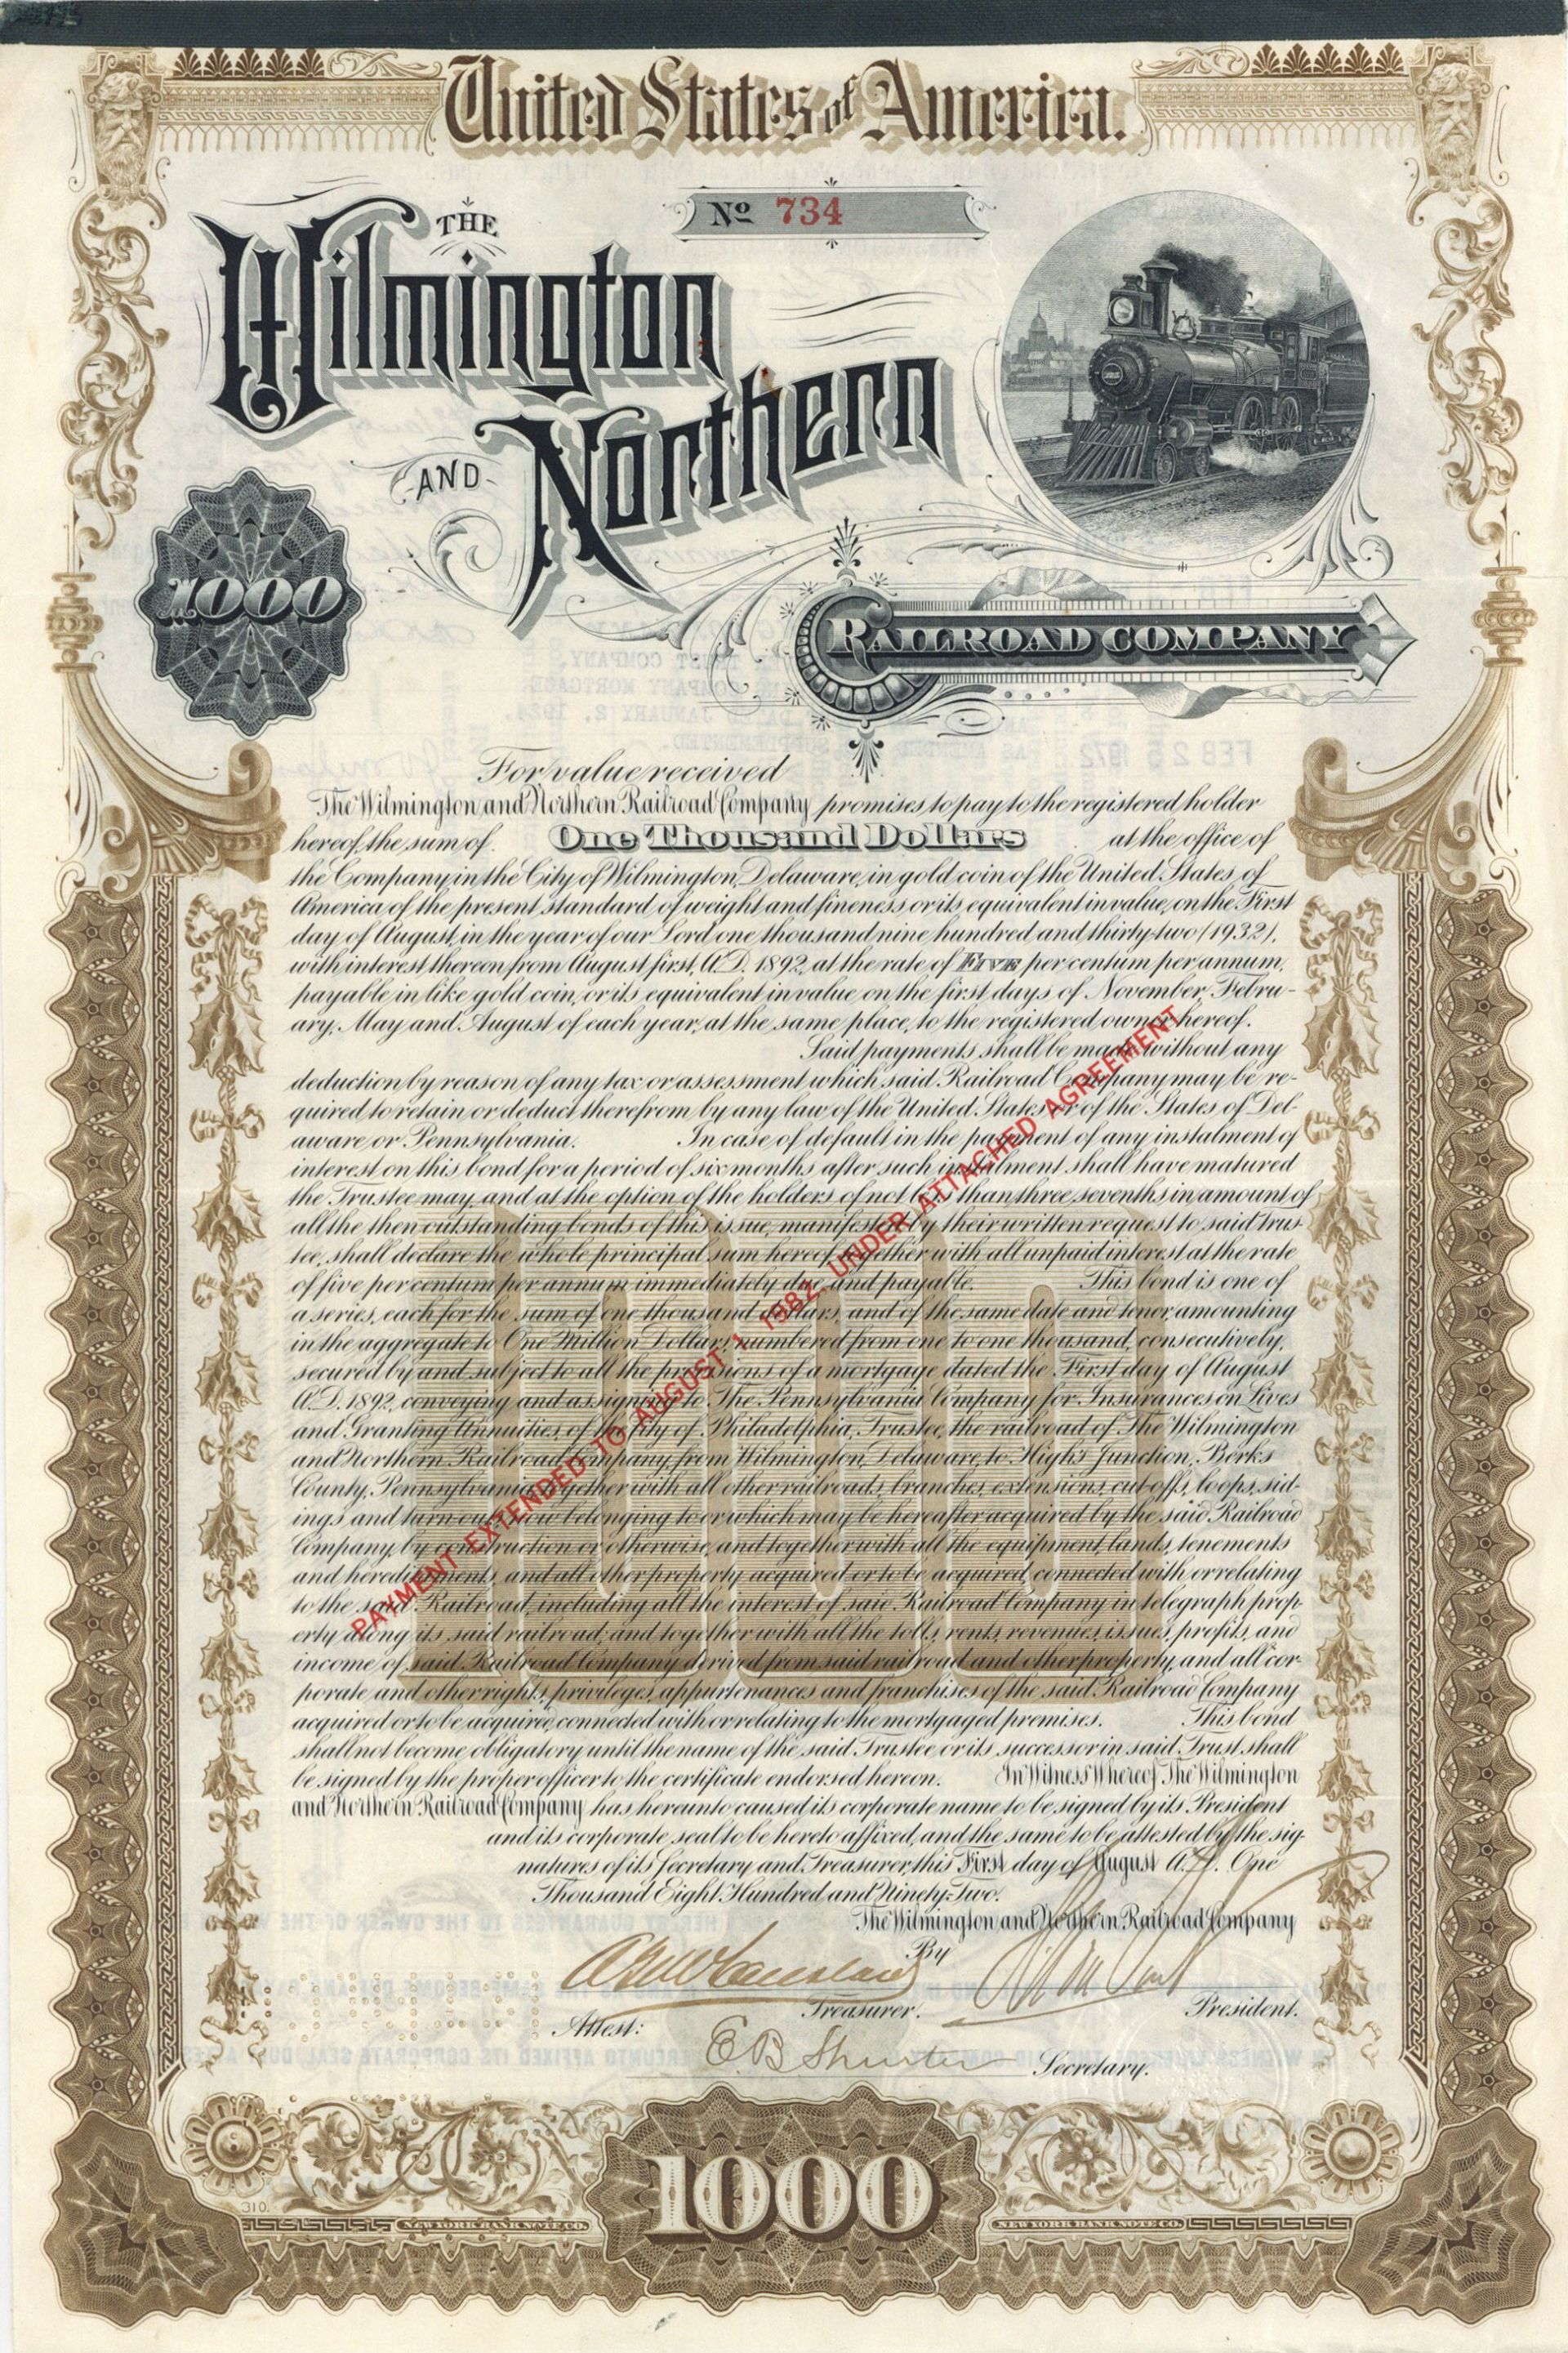 United States of America.
No 734
THE
Wilmington
AND
Northern
1000
RAILROAD COMPANY
For value received
The Wilmington and Northern Railroad Company promises to pay to the registered holder
hereof the sum of One Thousand Dollars at the office of
the Company in the City of Wilmington, Delaware, in gold coin of the United States of
America of the present standard of weight and fineness or its equivalent in value, on the First
day of August, in the year of our Lord one thousand nine hundred and thirty-two (1932),
with interest thereon from August first, A.D. 1892, at the rate of FIVE per centum per annum,
payable in like gold coin, or its equivalent in value on the first days of November, Febru-
ary, May and August of each year, at the same place, to the registered owner hereof.
Said payments shall be made without any
deduction by reason of any tax or assessment which said Railroad Company may be re-
quired to retain or deduct therefrom by any law of the United States or of the States of Del-
aware or Pennsylvania. In case of default in the payment of any instalment of
interest on this bond for a period of six months after such instalment shall have matured
the Trustee may, and at the option of the holders of not less than three sevenths in amount of
all the then outstanding bonds of this issue, manifested by their written request to said trus-
tee, shall declare the whole principal sum hereof, together with all unpaid interest at the rate
of five per centum per annum immediately due, and payable. This bond is one of
a series, each for the sum of one thousand dollars, and of the same date and tenor, amounting
in the aggregate to One Million Dollars, numbered from one to one thousand, consecutively,
secured by and subject to all the provisions of a mortgage dated the First day of August
A.D. 1892, conveying and assigning to The Pennsylvania Company for Insurances on Lives
and Granting Annuities, of the City of Philadelphia, Trustee, the railroad of The Wilmington
and Northern Railroad Company, from Wilmington, Delaware, to High's Junction, Berks
County, Pennsylvania, together with all other railroads, branches, extensions, cut-offs, loops, sid-
ings and turn outs, now belonging to or which may be hereafter acquired by the said Railroad
Company, by construction or otherwise, and together with all the equipment, lands, tenements
and hereditaments, and all other property acquired or to be acquired, connected with or relating
to the said Railroad, including all the interest of said Railroad Company in telegraph prop-
erty along its said railroad; and together with all the tolls, rents, revenues, issues, profits, and
income of said Railroad Company derived from said railroad and other property, and all cor-
porate and other rights, privileges, appurtenances and franchises of the said Railroad Company
acquired or to be acquired, connected with or relating to the mortgaged premises. This bond
shall not become obligatory until the name of the said Trustee or its successor in said Trust shall
be signed by the proper officer to the certificate endorsed hereon. In Witness Whereof The Wilmington
and Northern Railroad Company has hereunto caused its corporate name to be signed by its President
and its corporate seal to be hereto affixed, and the same to be attested by the sig-
natures of its Secretary and Treasurer, this First day of August A.D. One
Thousand Eight Hundred and Ninety-Two.
PAYMENT EXTENDED TO AUGUST 1, 1982 UNDER ATTACHED AGREEMENT
The Wilmington and Northern Railroad Company
By
Treasurer. President.
Attest:
Secretary.
310.
NEW YORK BANK NOTE CO. 1000 NEW YORK BANK NOTE CO.